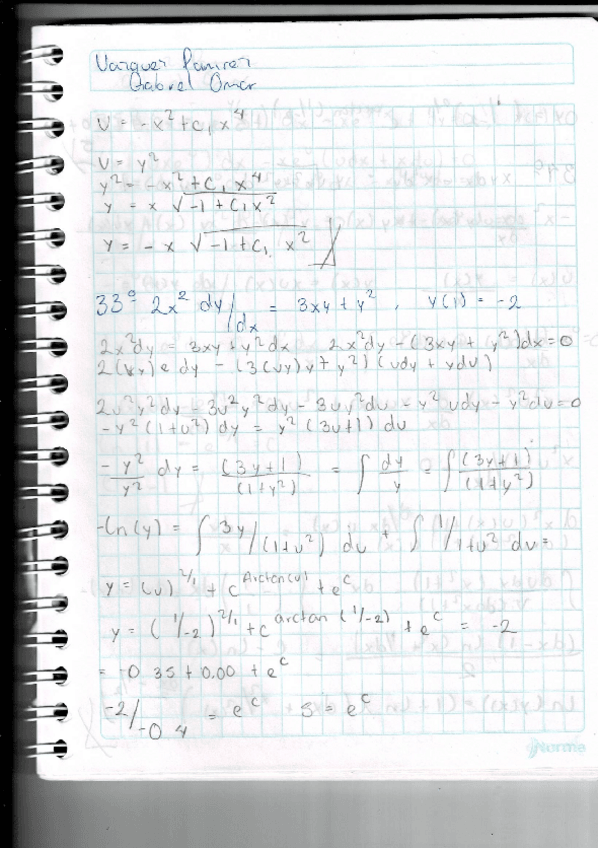 Vazquez Ramirez
Gabriel Omar
U = -x² + C₁ x⁴
U = y²
y² = -x² + C₁ x⁴
y = x √-1 + C₁x²
y = - x √-1 + C₁ x²
33º 2x² dy/dx = 3xy + y² , y(1) = -2
2x²dy = 3xy + y²dx 2x²dy - (3xy + y²)dx = 0
2(vy)e dy - (3(vy)y + y²) (vdy + ydv)
2v²y²dy - 3v²y²dy - 3vy²dv - y²vdy - y²dv = 0
-y²(1+v²) dy = y²(3v+1) dv
- y²/y² dy = (3y+1)/(1+y²) = ∫ dy/y = ∫ (3y+1)/(1+y²)
-ln(y) = ∫ 3y/(1+v²) dv + ∫ 1/1+v² dv =
y = (v)^2/1 + c^Arctan(v) + e^c
y = (1/-2)^2/1 + c^arctan(1/-2) + e^c = -2
= -0.35 + 0.00 + e^c
-2/-0.4 = e^c 5 = e^c
Norma